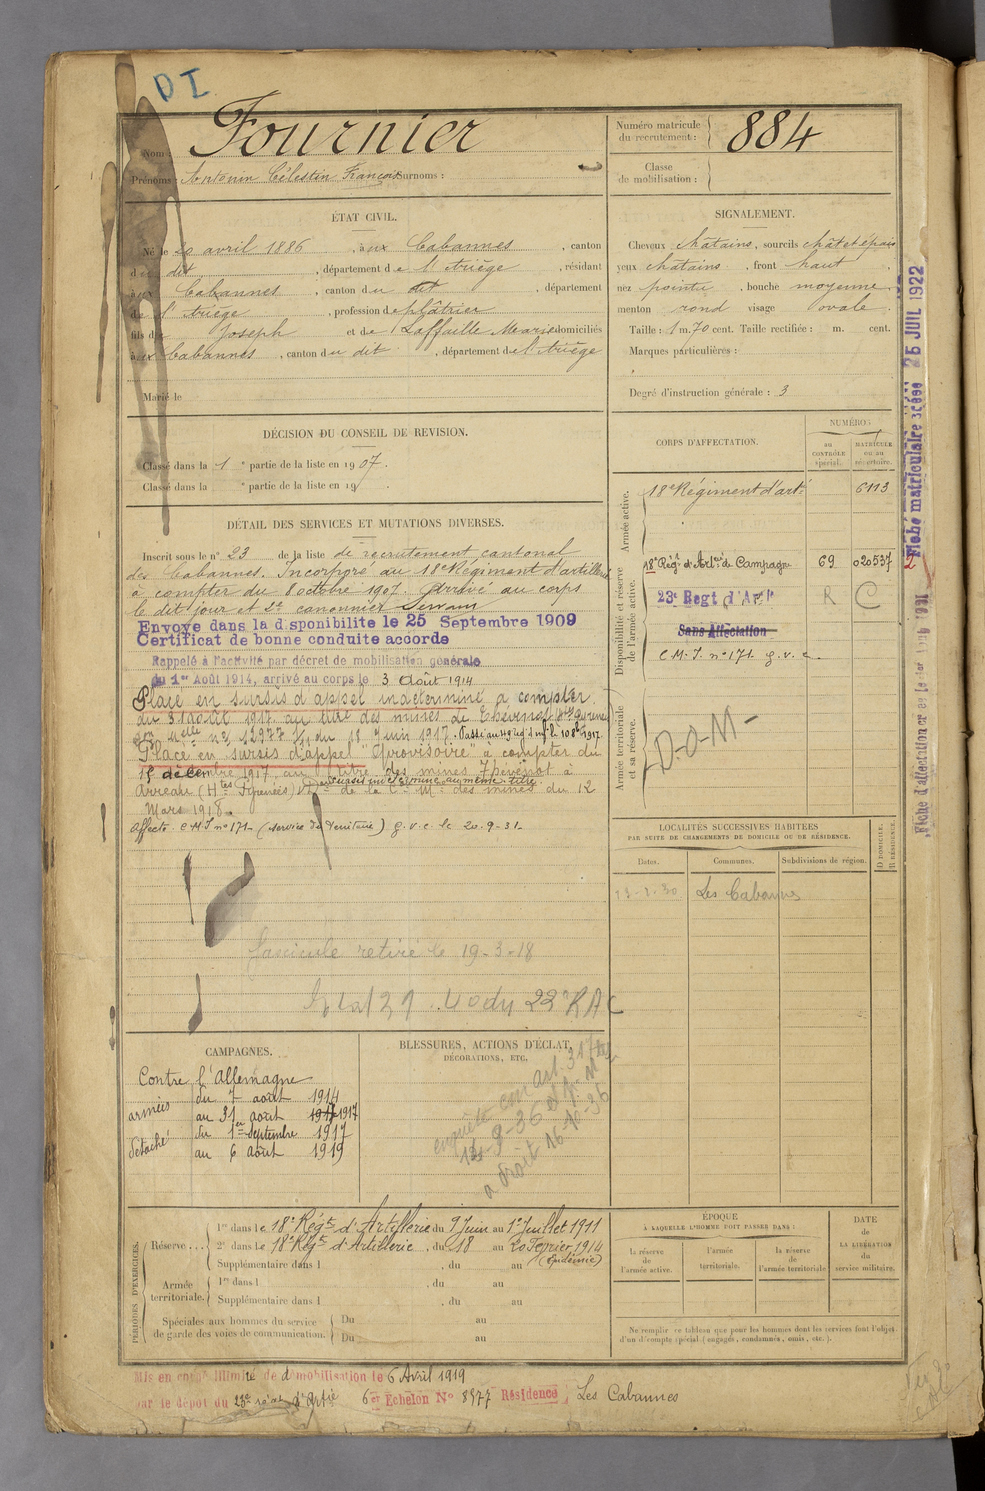 D I
Nom : Fournier
Prénoms : Antonin Célestin François Surnoms :
Numéro matricule du recrutement : 884
Classe de mobilisation :
ÉTAT CIVIL.
Né le 20 avril 1886, à ux Cabannes, canton
du dit, département de l'Ariège, résidant
à ux Cabannes, canton du dit, département
de l'Ariège, profession de plâtrier
fils de Joseph et de Laffaille Marie domiciliés
à ux Cabannes, canton du dit, département de l'Ariège
Marié le
SIGNALEMENT.
Cheveux châtains, sourcils chât et épais
yeux châtains, front haut,
nez pointu, bouche moyenne
menton rond visage ovale.
Taille : 1 m. 70 cent. Taille rectifiée : m. cent.
Marques particulières :
Degré d'instruction générale : 3
DÉCISION DU CONSEIL DE REVISION.
Classé dans la 1e partie de la liste en 1907.
Classé dans la e partie de la liste en 19
DÉTAIL DES SERVICES ET MUTATIONS DIVERSES.
Inscrit sous le n° 23 de la liste de recrutement cantonal
des Cabannes. Incorporé au 18e Régiment d'artillerie
à compter du 8 octobre 1907. Arrivé au corps
le dit jour et 2e canonnier servant
Envoyé dans la disponibilité le 25 Septembre 1909
Certificat de bonne conduite accordé
Rappelé à l'activité par décret de mobilisation générale
du 1er Août 1914, arrivé au corps le 3 Août 1914
Placé en sursis d'appel indéterminé à compter
du 31 août 1917 au titre des mines de
du 18 juin 1917. Passé au 49 le 10 8bre 1917.
Placé en sursis d'appel "Provisoire" à compter du
15 décembre 1917 au titre des mines Thévenot à
Arreau (Htes Pyrénées) de la Cie M. des mines du 12
Mars 1918.
Affecté C M I n° 171 (service de Territoire) g. v. c. le 20-9-31.
fascicule retiré le 19-3-18
23e RAC
CORPS D'AFFECTATION.
NUMÉROS
au CONTRÔLE spécial.
MATRICULE ou au répertoire.
Armée active.
18e Régiment d'artie 6113
Disponibilité et réserve de l'armée active.
18e Régt d'Artrie de Campagne 69 020537
23e Regt d'Artie R C
Sans Affectation
C M. I. n° 171 g. v. c.
Armée territoriale et sa réserve.
D-O-M-
LOCALITÉS SUCCESSIVES HABITÉES
PAR SUITE DE CHANGEMENTS DE DOMICILE OU DE RÉSIDENCE.
Dates. Communes. Subdivisions de région.
D DOMICILE. R RÉSIDENCE.
Les Cabannes
Fiche matriculaire 25 JUIL 1922
CAMPAGNES.
Contre l'Allemagne
armées du 7 août 1914
au 31 août 1917 1917
détaché du 1er Septembre 1917
au 6 août 1919
BLESSURES, ACTIONS D'ÉCLAT,
DÉCORATIONS, ETC.
a droit 16-10-36
PÉRIODES D'EXERCICES.
Réserve...
1re dans le 18e Régt d'Artillerie du 9 Juin au 1er Juillet 1911
2e dans le 18e Régt d'Artillerie, du 18 au 20 Février 1914
(Epidémie)
Supplémentaire dans l , du au
Armée territoriale.
1re dans l , du au
Supplémentaire dans l , du au
Spéciales aux hommes du service de garde des voies de communication.
Du au
Du au
ÉPOQUE
À LAQUELLE L'HOMME DOIT PASSER DANS :
la réserve de l'armée active.
l'armée territoriale.
la réserve de l'armée territoriale
DATE
de
LA LIBÉRATION
du
service militaire.
Ne remplir ce tableau que pour les hommes dont les services font l'objet
d'un décompte spécial (engagés, condamnés, omis, etc.).
Mis en congé illimité de démobilisation le 6 Avril 1919
par le dépôt du 23e régt d'Artie 6er Echelon N° 8577 Résidence, Les Cabannes